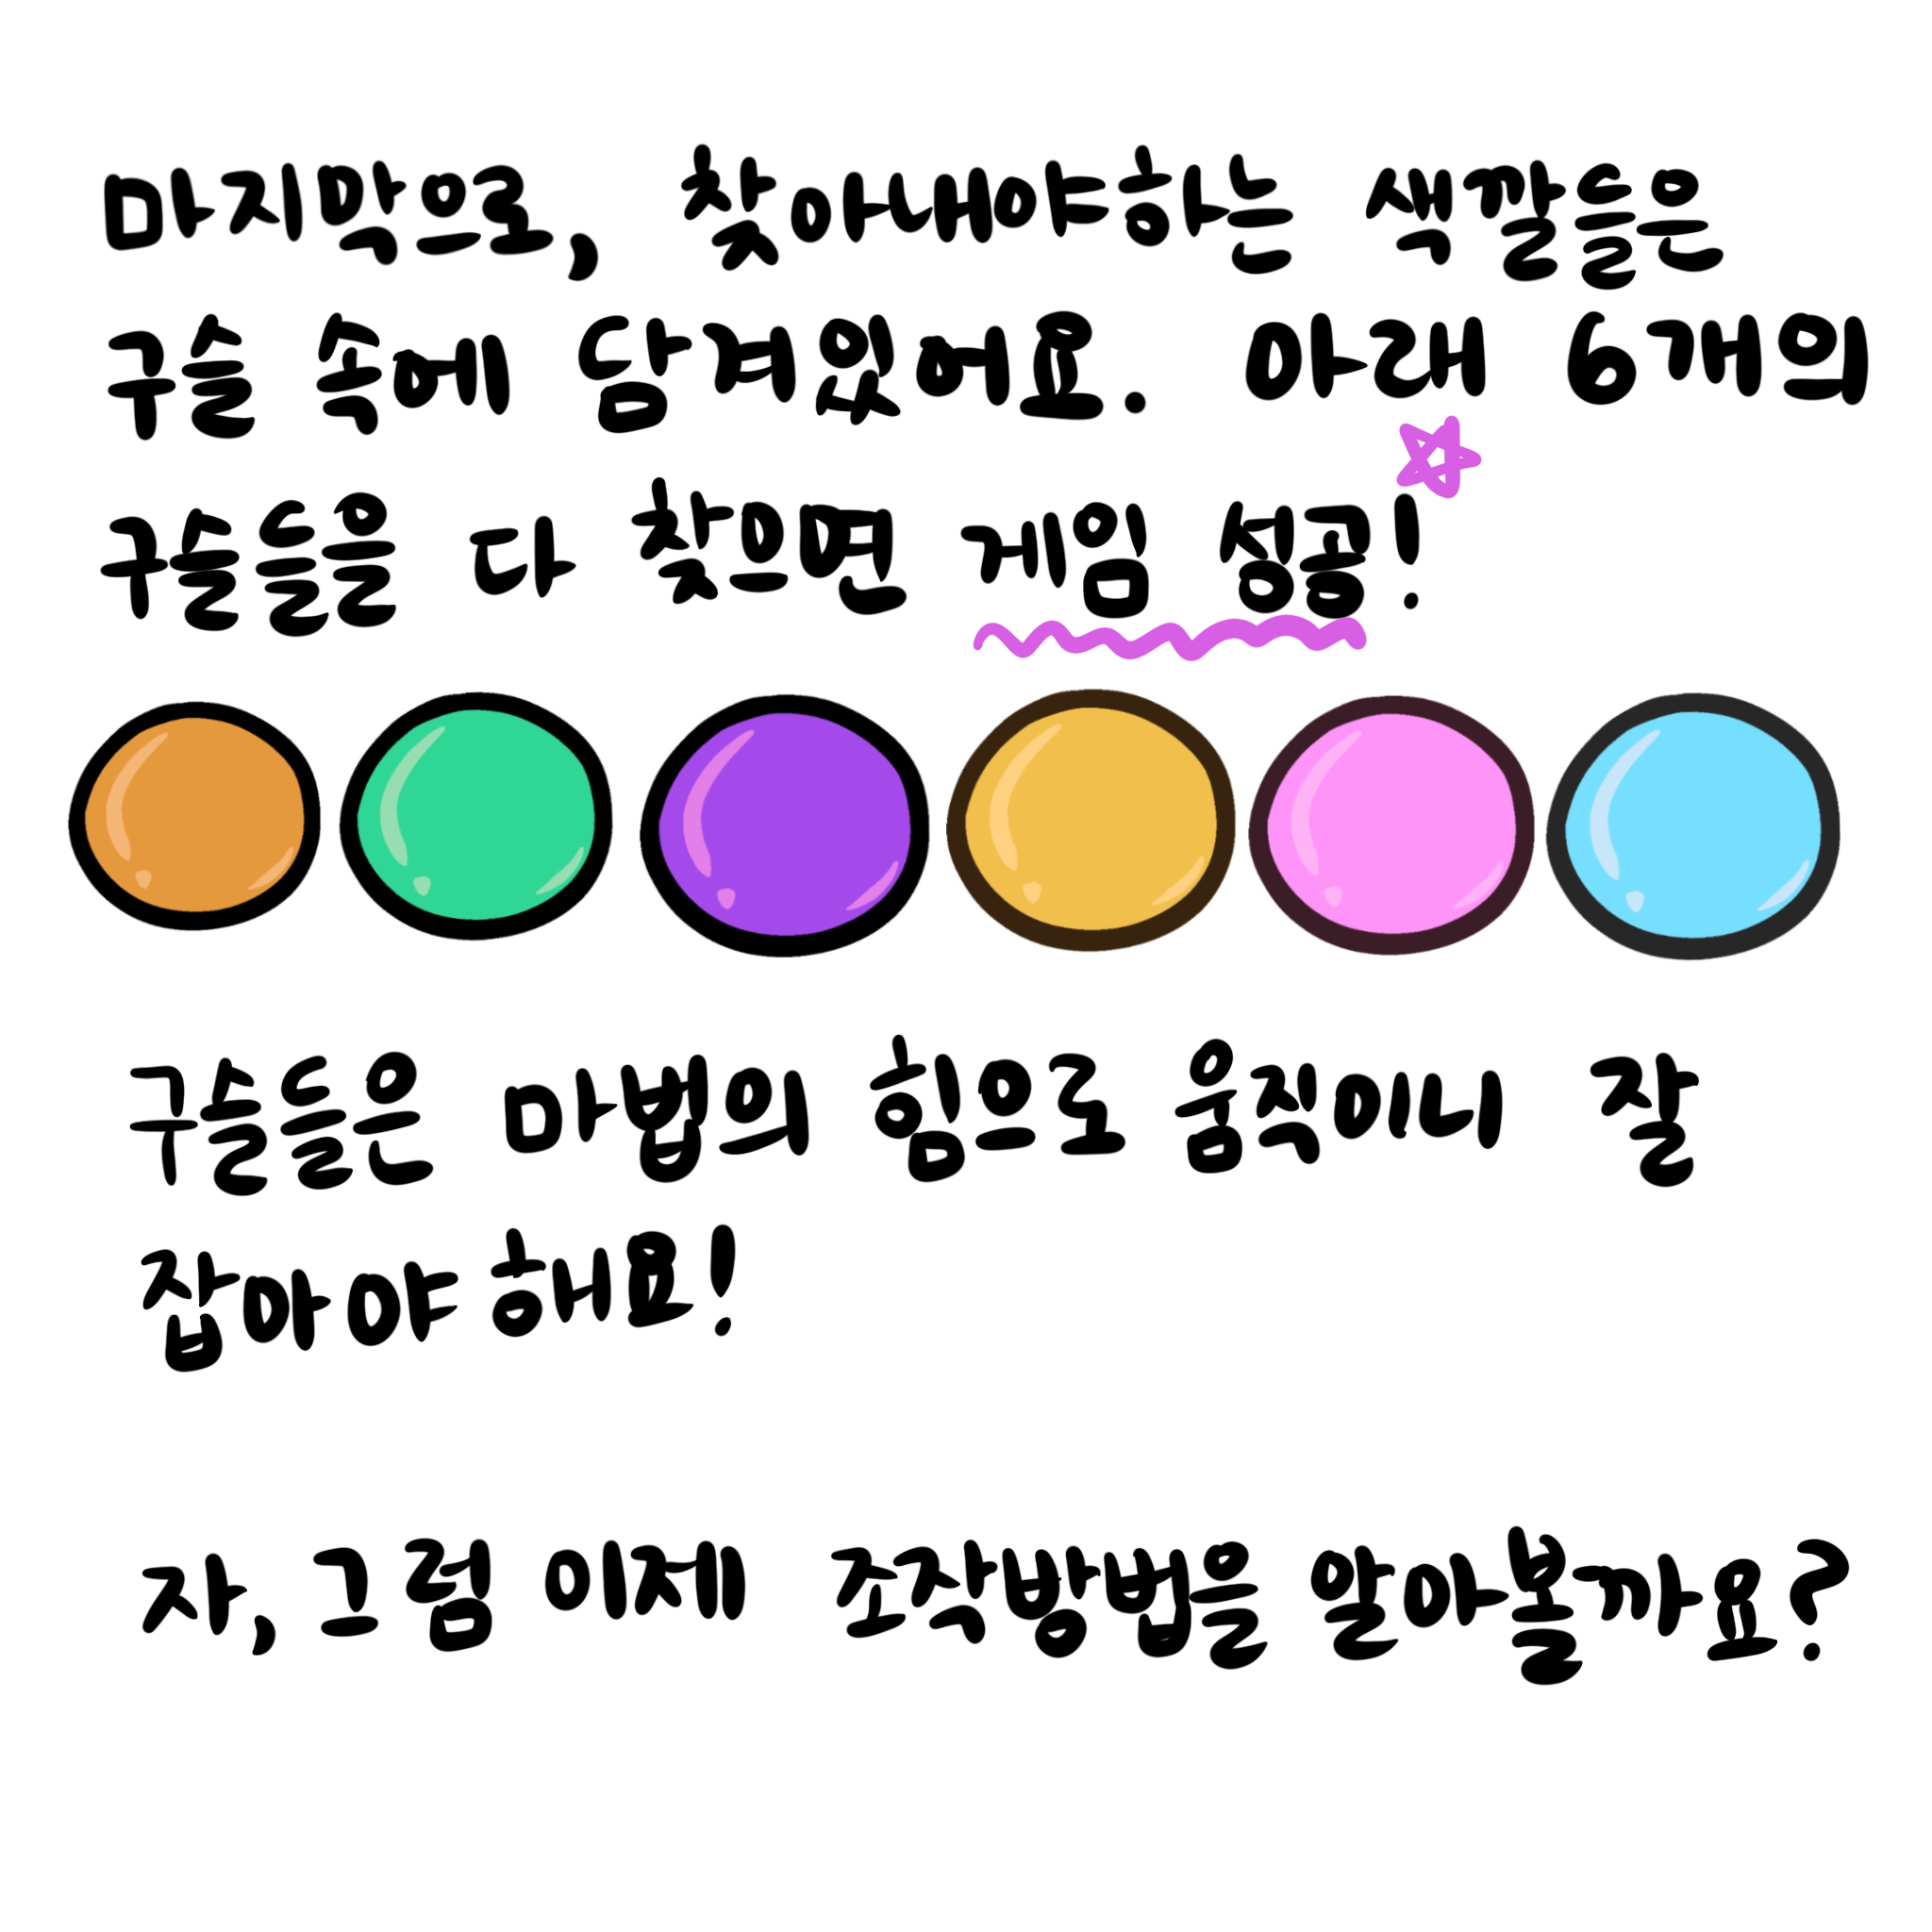 마지막으로, 찾아내야하는 색깔들은
구슬 속에 담겨있어요. 아래 6개의
구슬들을 다 찾으면 게임 성공!
구슬들은 마법의 힘으로 움직이니 잘
잡아야 해요!
자, 그럼 이제 조작방법을 알아볼까요?